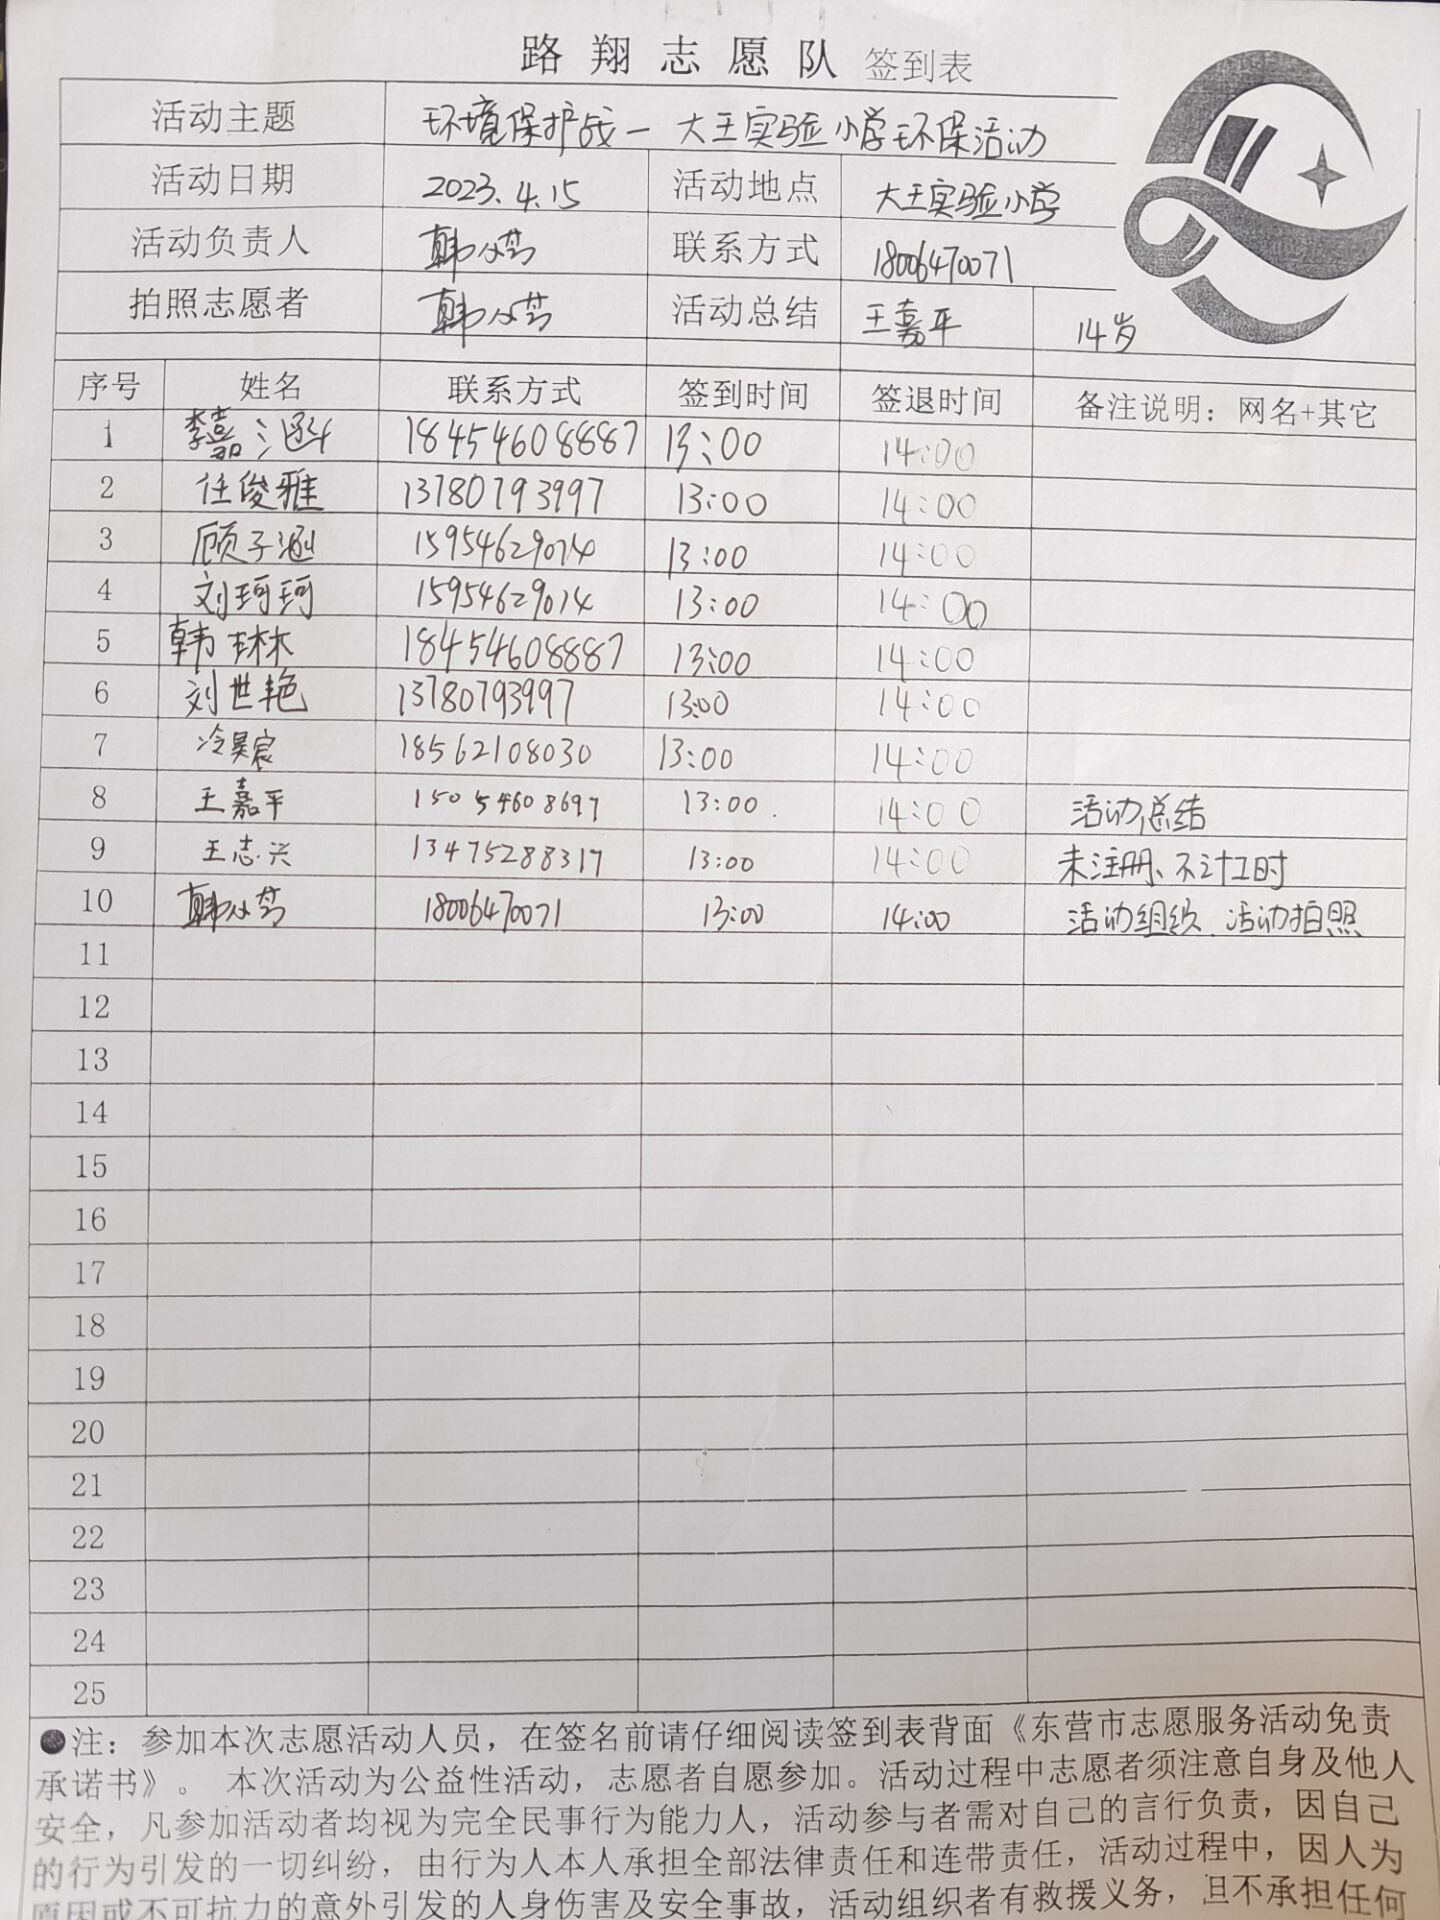 路翔志愿队 签到表
活动主题 环境保护战一大王实验小学环保活动
活动日期 2023.4.15 活动地点 大王实验小学
活动负责人 韩 联系方式 18006470071
拍照志愿者 韩 活动总结 王嘉平 14岁
序号 姓名 联系方式 签到时间 签退时间 备注说明：网名+其它
1 李嘉涵 18454608887 13:00 14:00
2 任俊雅 13780793997 13:00 14:00
3 顾子涵 15954629074 13:00 14:00
4 刘珂珂 15954629074 13:00 14:00
5 韩琳 18454608887 13:00 14:00
6 刘世艳 13780793997 13:00 14:00
7 冷昊宸 18562108030 13:00 14:00
8 王嘉平 15054608697 13:00 14:00 活动总结
9 王志兴 13475288317 13:00 14:00 未注册、不计工时
10 韩 18006470071 13:00 14:00 活动组织、活动拍照
11
12
13
14
15
16
17
18
19
20
21
22
23
24
25
●注：参加本次志愿活动人员，在签名前请仔细阅读签到表背面《东营市志愿服务活动免责
承诺书》。 本次活动为公益性活动，志愿者自愿参加。活动过程中志愿者须注意自身及他人
安全，凡参加活动者均视为完全民事行为能力人，活动参与者需对自己的言行负责，因自己
的行为引发的一切纠纷，由行为人本人承担全部法律责任和连带责任，活动过程中，因人为
原因或不可抗力的意外引发的人身伤害及安全事故，活动组织者有救援义务，但不承担任何